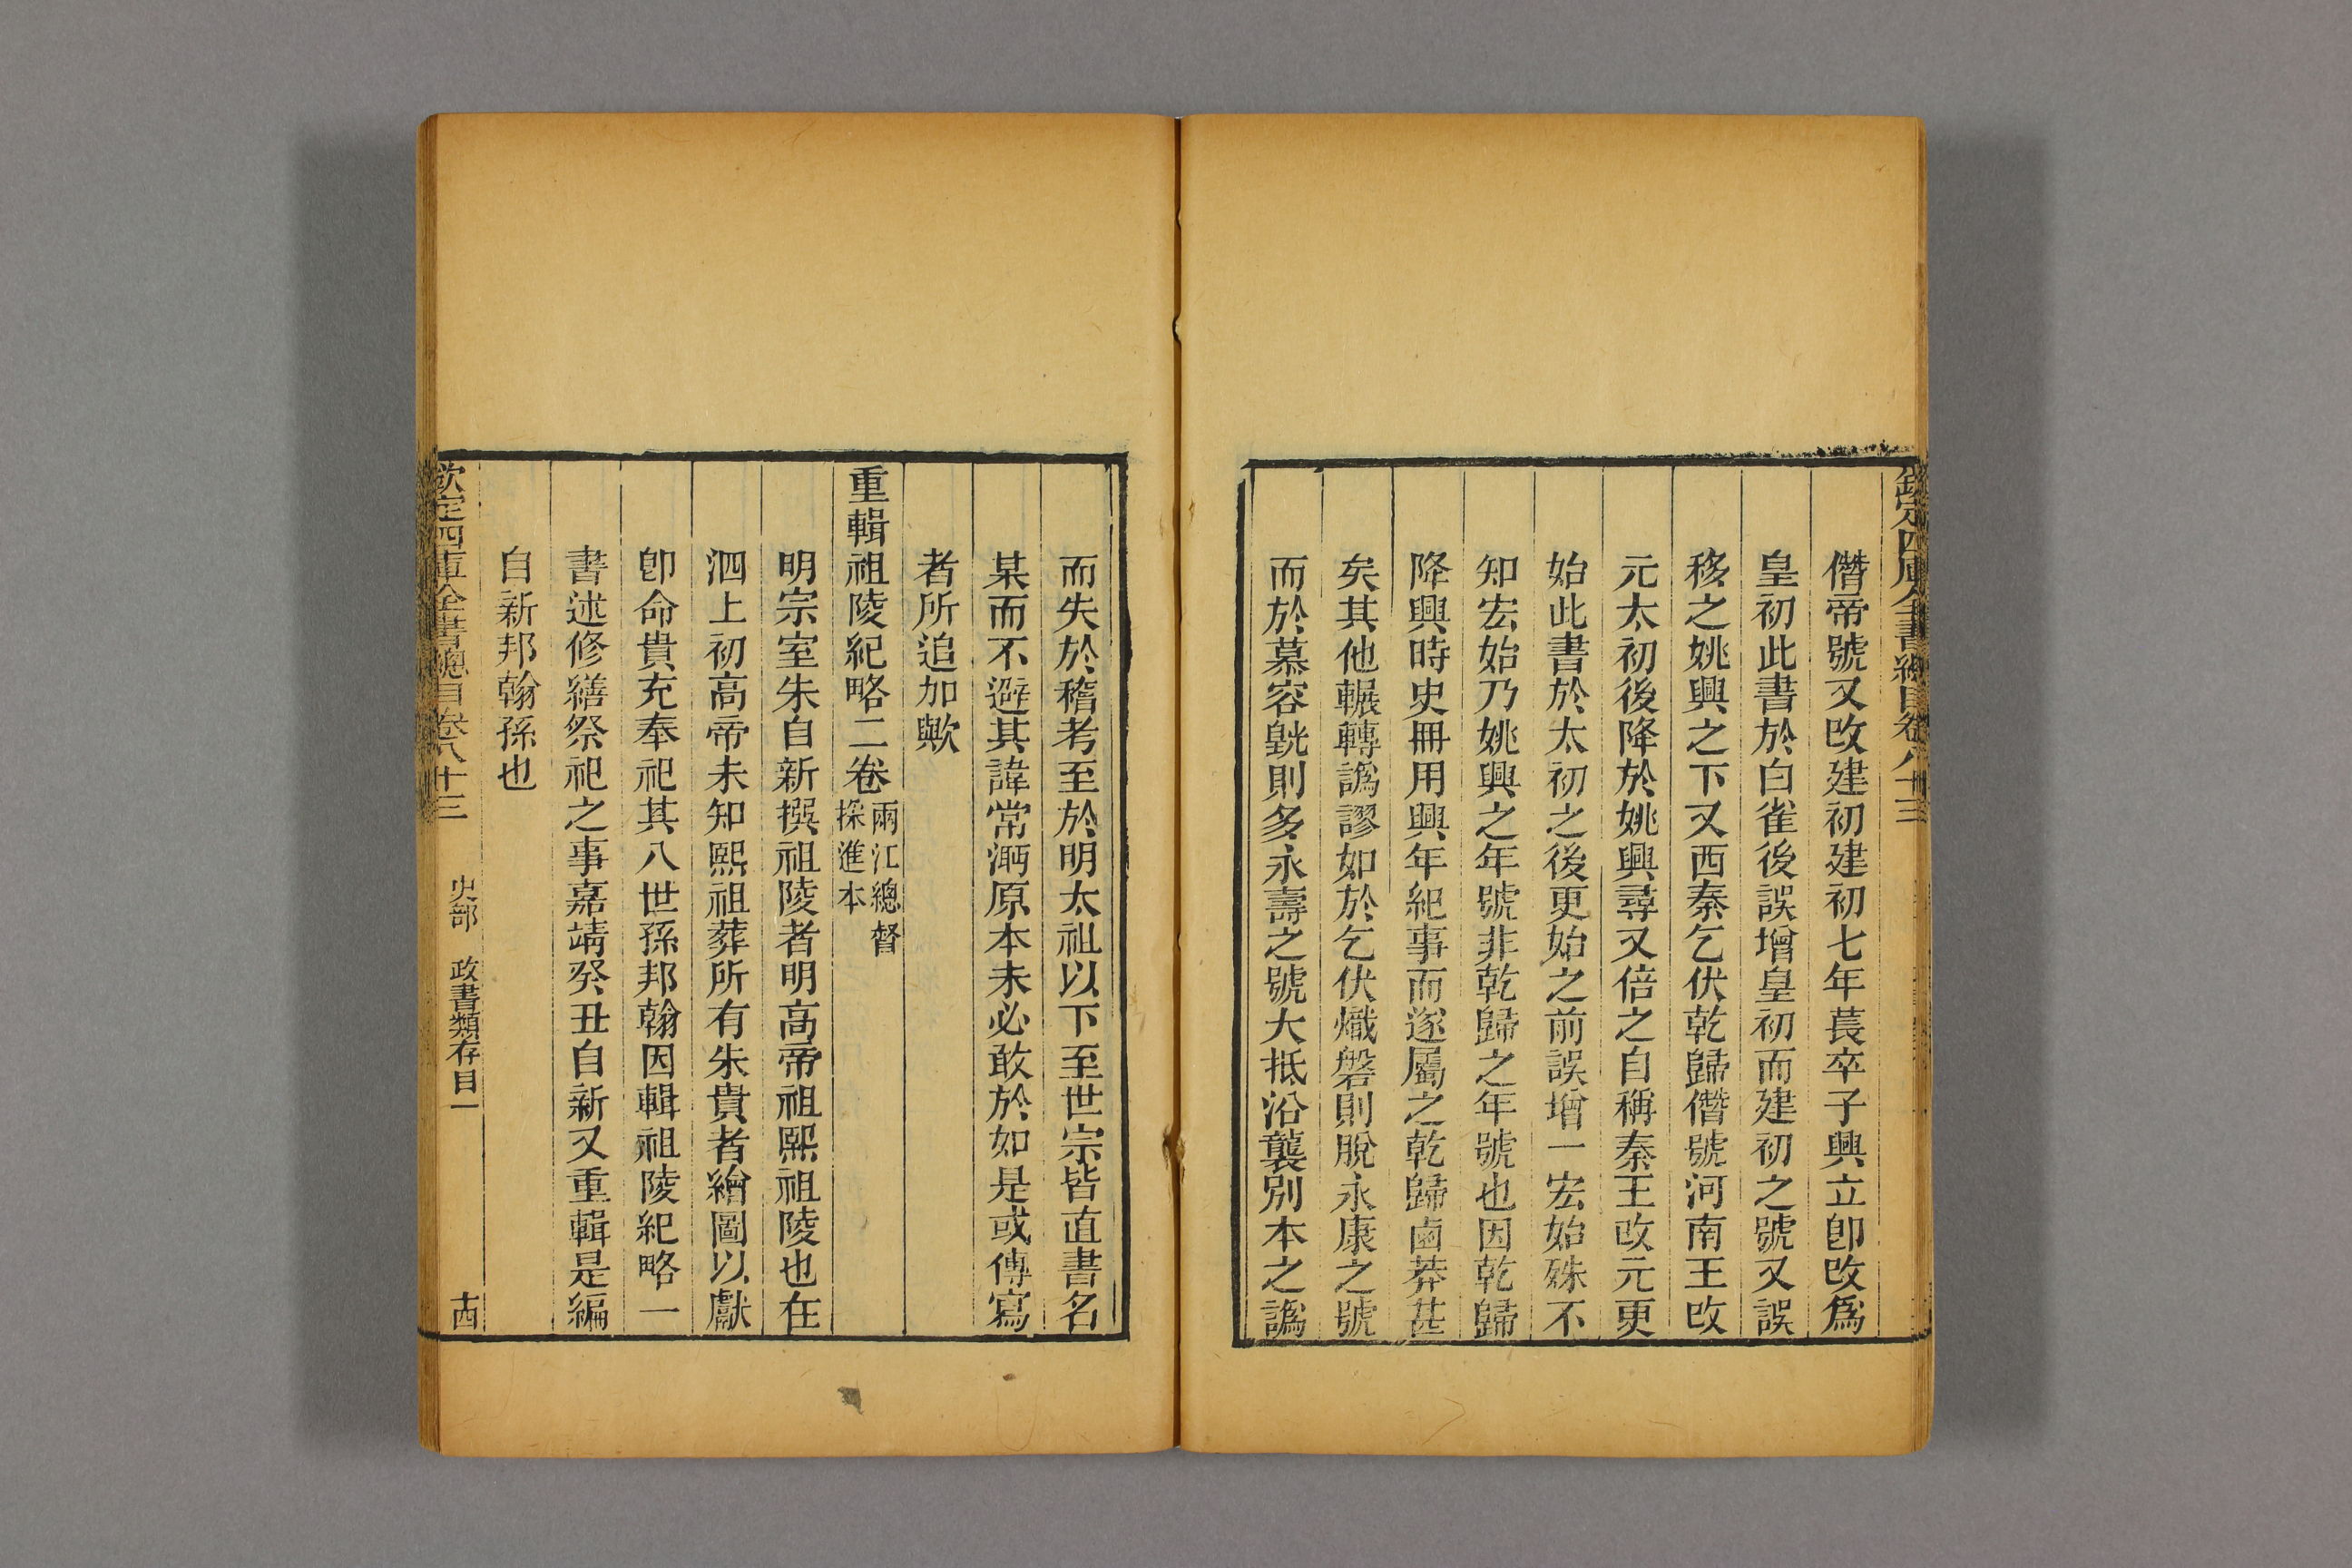 欽定四庫全書總目卷八十三
僭帝號又改建初建初七年萇卒子興立卽改爲
皇初此書於白雀後誤增皇初而建初之號又誤
移之姚興之下又西秦乞伏乾歸僭號河南王改
元太初後降於姚興尋又倍之自稱秦王改元更
始此書於太初之後更始之前誤增一宏始殊不
知宏始乃姚興之年號非乾歸之年號也因乾歸
降興時史冊用興年紀事而遂屬之乾歸鹵莽甚
矣其他輾轉譌謬如於乞伏熾磐則脫永康之號
而於慕容皝則多永壽之號大抵沿襲別本之譌
而失於稽考至於明太祖以下至世宗皆直書名
某而不避其諱常沔原本未必敢於如是或傳寫
者所追加歟
重輯祖陵紀略二卷
兩江總督
採進本
明宗室朱自新撰祖陵者明高帝祖熙祖陵也在
泗上初高帝未知熙祖葬所有朱貴者繪圖以獻
卽命貴充奉祀其八世孫邦翰因輯祖陵紀略一
書述修繕祭祀之事嘉靖癸丑自新又重輯是編
自新邦翰孫也
欽定四庫全書總目卷八十三 史部 政書類存目一 十四